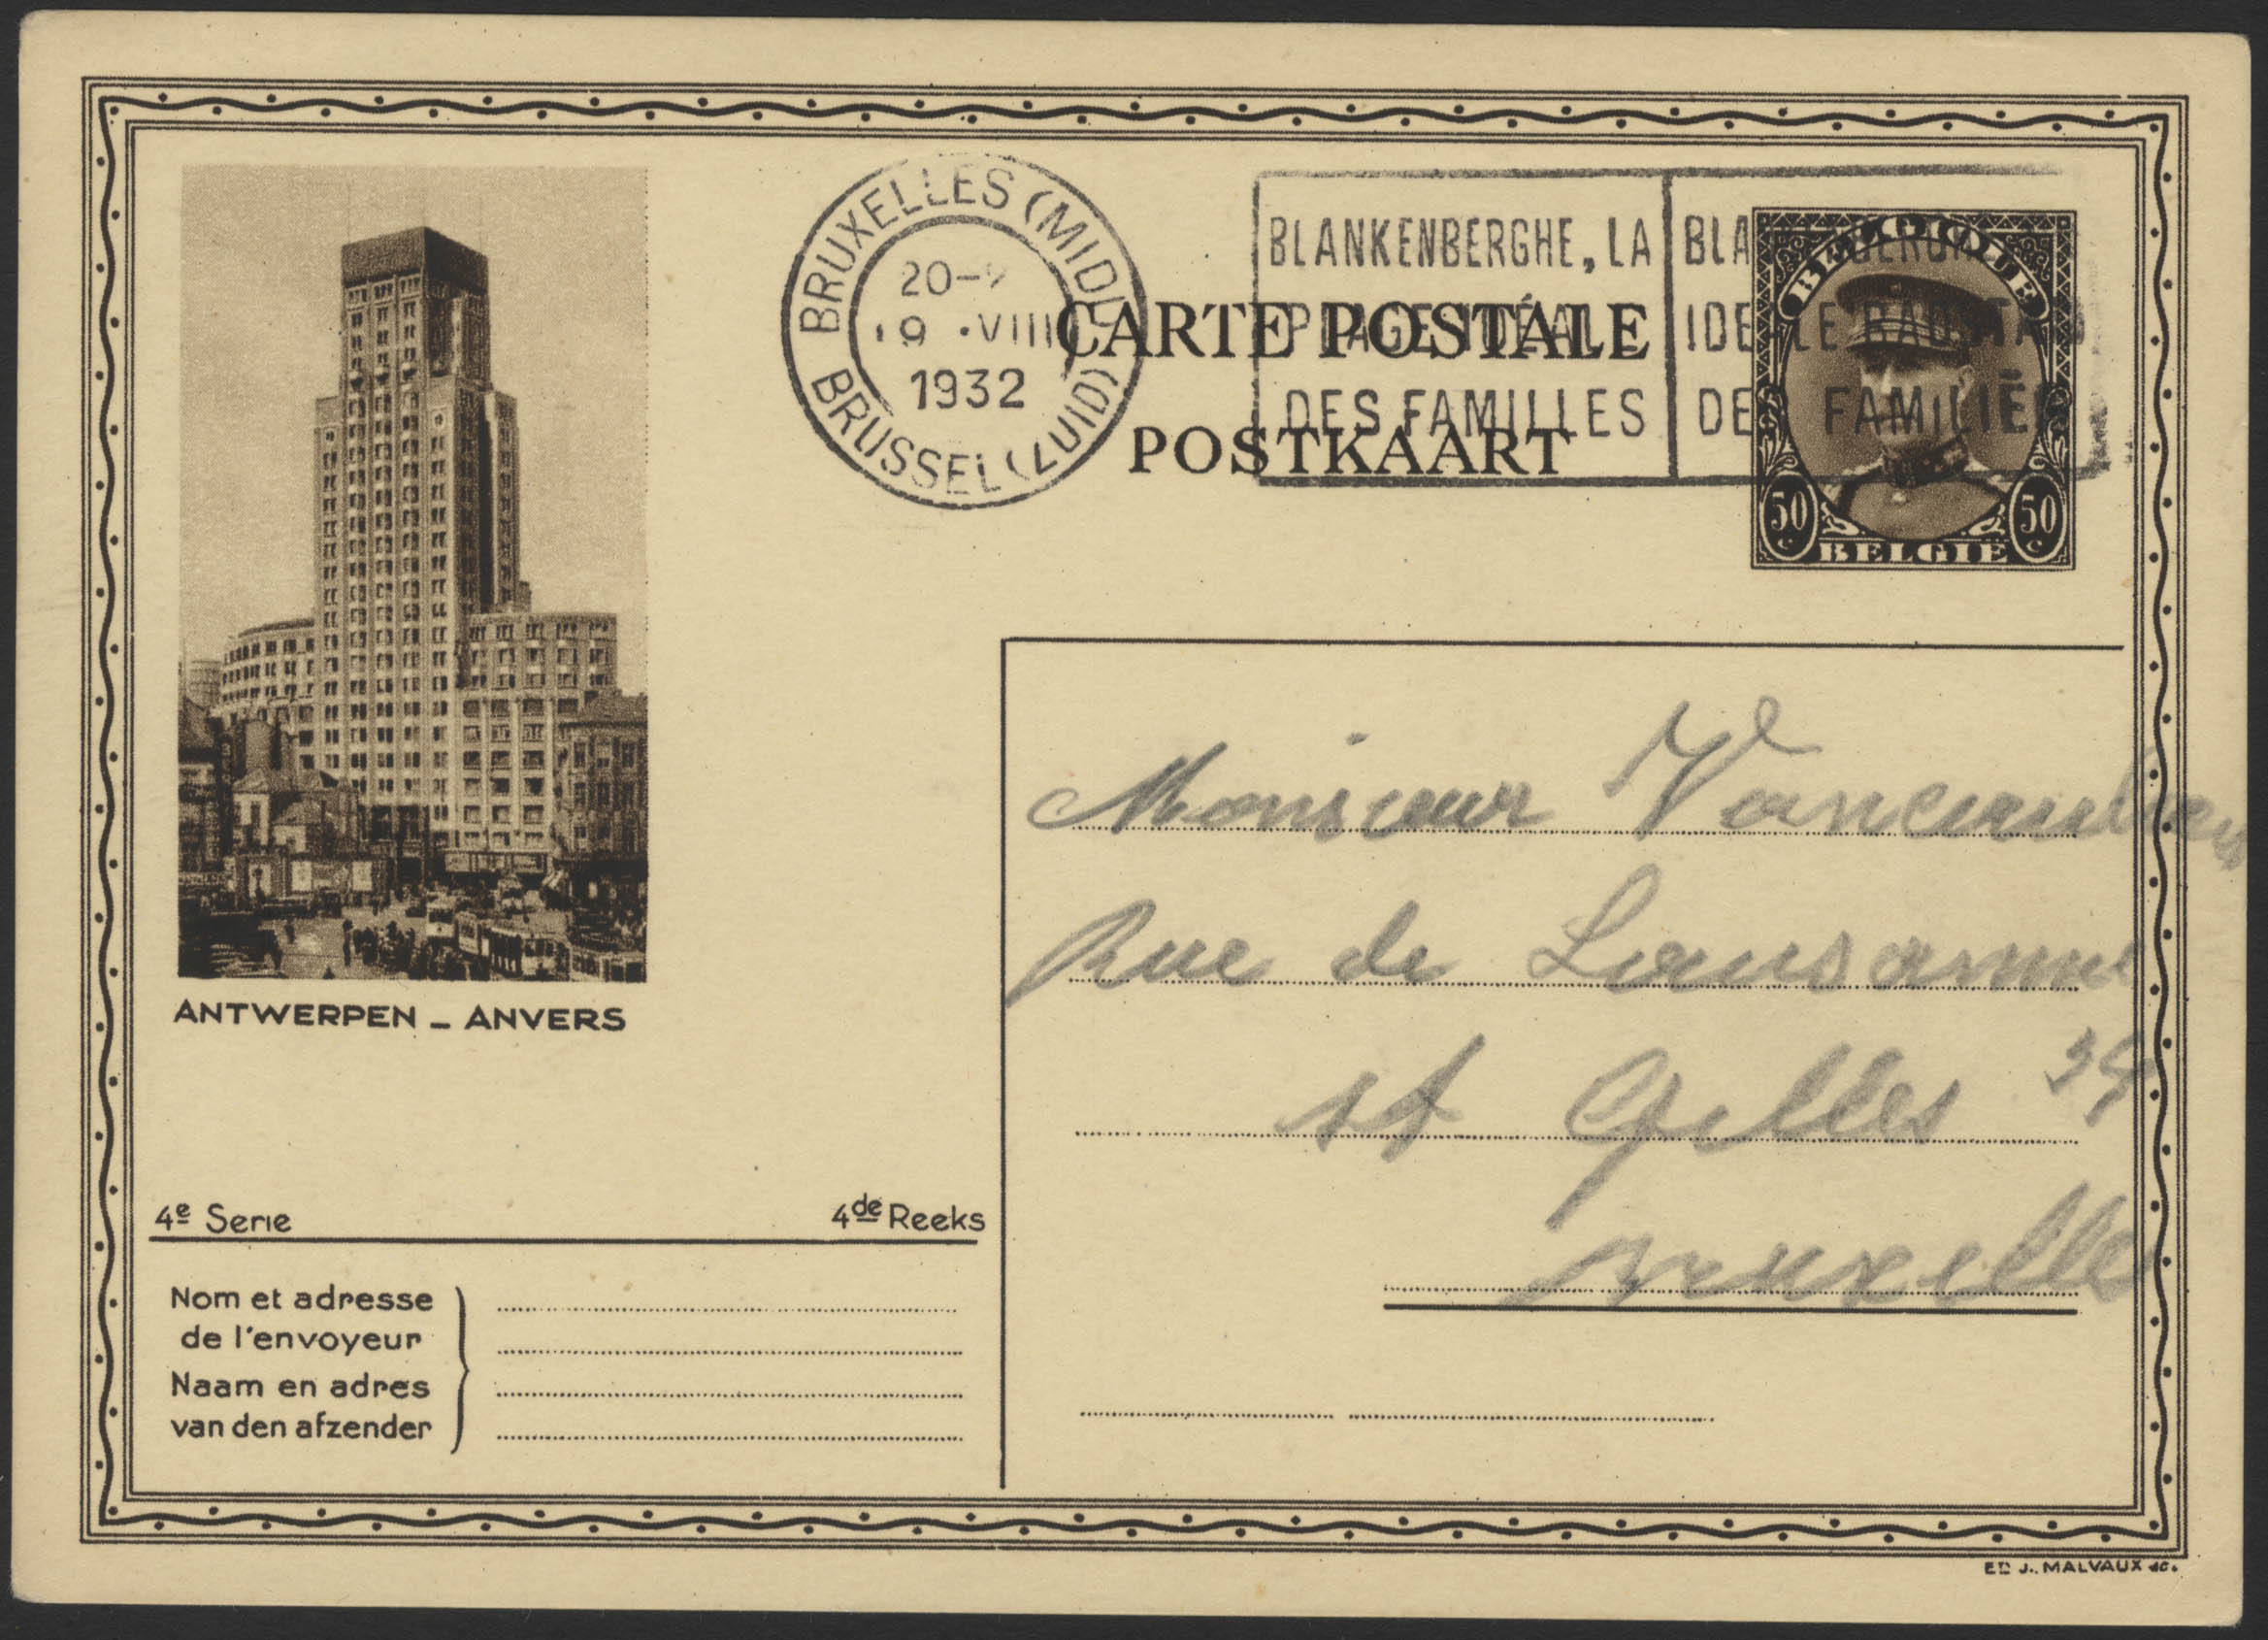 BRUXELLES (MIDI)
20-
9 · VIII
1932
BRUSSEL (ZUID)
BLANKENBERGHE, LA
PLAGE IDÉALE
DES FAMILLES
IDE
FAMILIE
CARTE POSTALE
POSTKAART
BELGIQUE
50 c
50 c
BELGIË
ANTWERPEN – ANVERS
Monsieur
Rue de Lausanne
st Gilles
Bruxelles
4e Serie
4de Reeks
Nom et adresse
de l'envoyeur
Naam en adres
van den afzender
ED J. MALVAUX